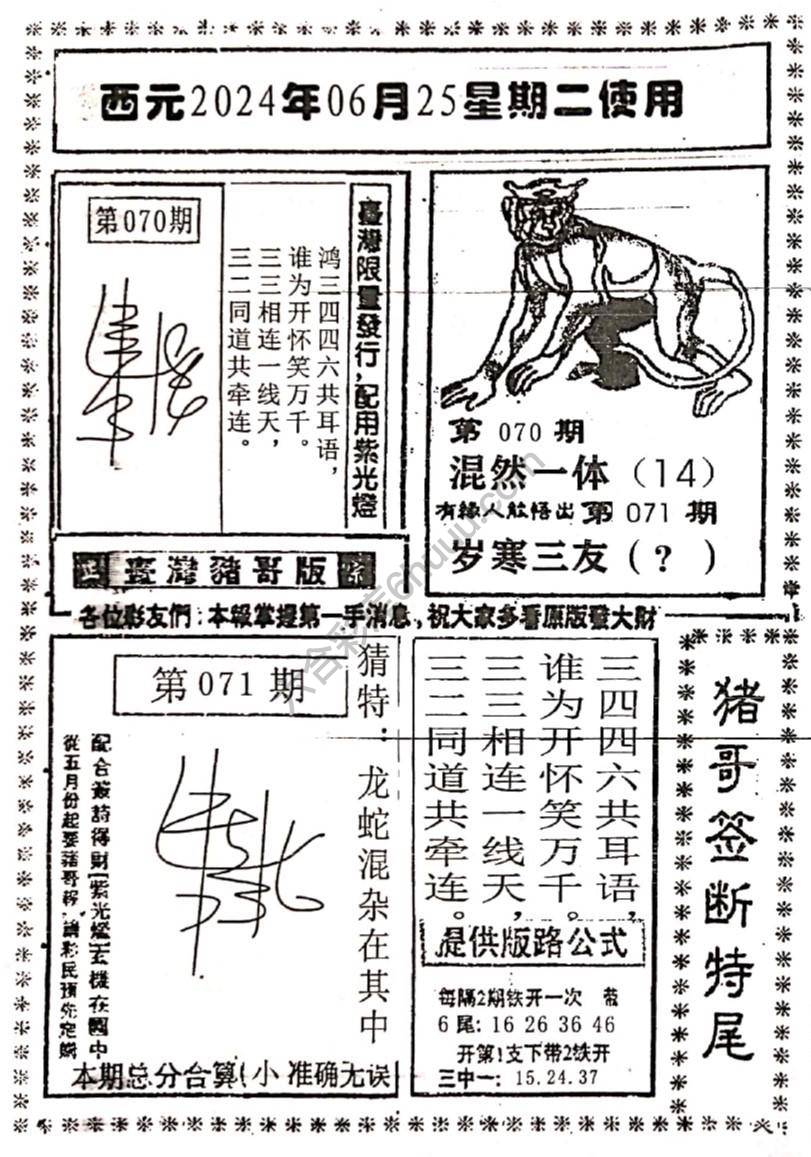 西元2024年06月25星期二使用
第070期
鸿三四四六共耳语，
谁为开怀笑万千。
三三相连一线天，
三二同道共牵连。
臺灣限量發行，配用紫光燈
第 070 期
混然一体（14）
有緣人能悟出 第 071 期
岁寒三友（？）
臺灣豬哥版
各位彩友們：本報掌握第一手消息，祝大家多看原版發大財
第071期
猜特：龙蛇混杂在其中
配合簽詩得財[紫光燈]玄機在圖中
從五月份起要豬哥報，請彩民預先定購
本期总分合算(小 准确无误
三四四六共耳语，
谁为开怀笑万千。
三三相连一线天，
三二同道共牵连。
提供版路公式
每隔2期铁开一次 带
6尾：16 26 36 46
开第1支下带2铁开
三中一：15.24.37
猪哥签断特尾
六合彩库6huuu.com